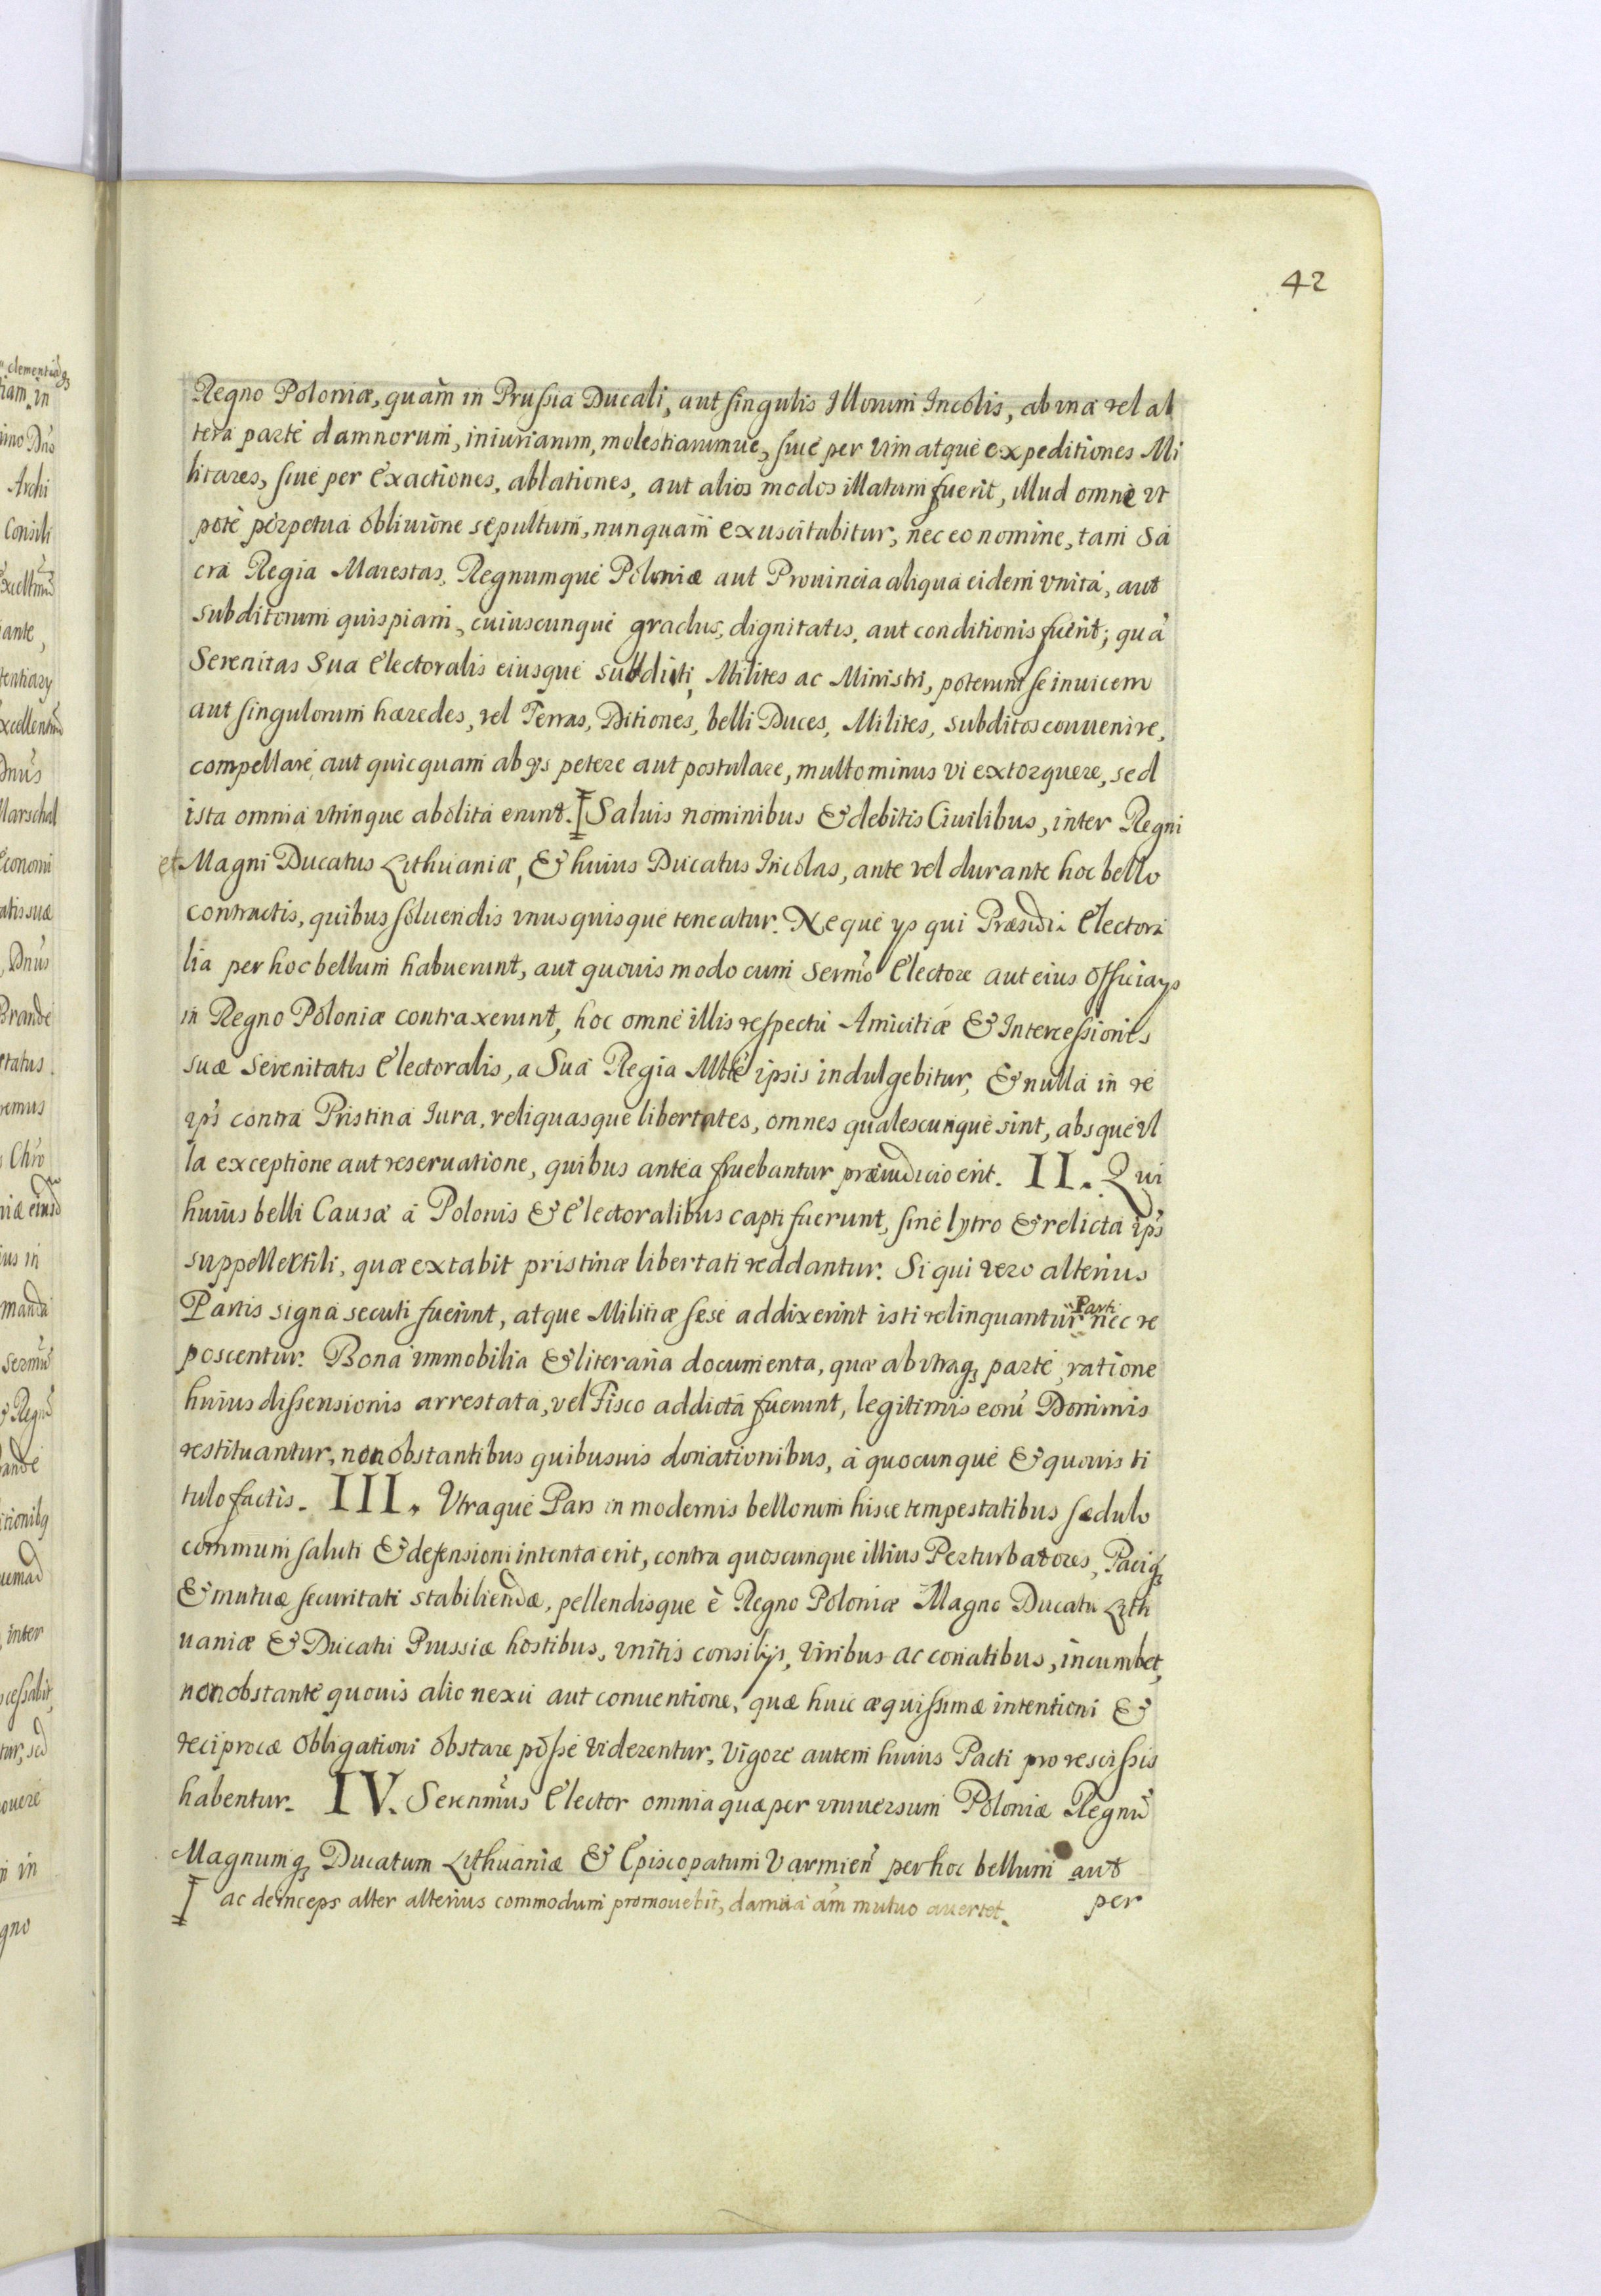 42
Regno Poloniæ, quam in Prussia Ducali, aut singulis Illorum Incolis, ab vna vel al
tera parte damnorum, iniuriarum, molestiarumue, siue per vim atque expeditiones Mi
litares, siue per Exactiones, ablationes, aut alios modos illatum fuerit, illud omne vt
pote perpetua obliuione sepultum, nunquam exuscitabitur, nec eo nomine, tam Sa
cra Regia Maiestas, Regnumque Poloniæ aut Prouincia aliqua eidem vnita, aut
subditorum quispiam, cuiuscunque gradus, dignitatis, aut conditionis fuerit; quà
Serenitas Sua Electoralis eiusque subditi, Milites ac Ministri, poterunt se inuicem
aut singulorum hæredes, vel Terras, Ditiones, belli Duces, Milites, subditos conuenire,
compellare, aut quicquam ab ijs petere aut postulare, multo minus vi extorquere, sed
ista omnia vtrinque abolita erunt. Saluis nominibus & debitis Ciuilibus, inter Regni
et Magni Ducatus Lithuaniæ, & huius Ducatus Incolas, ante vel durante hoc bello
contractis, quibus soluendis vnusquisque teneatur. Neque ijs qui Præsidia Electora
lia per hoc bellum habuerunt, aut quouis modo cum Sermo Electore aut eius Officiays
in Regno Poloniæ contraxerunt, hoc omne illis respectu Amicitiæ & Intercessionis
suæ Serenitatis Electoralis, a Sua Regia Mtte ipsis indulgebitur, & nulla in re
ips contra Pristina Iura, reliquasque libertates, omnes qualescunque sint, absque vl
la exceptione aut reseruatione, quibus antea fruebantur præiudicio erit. II. Qui
huius belli Causa à Polonis & Electoralibus capti fuerunt, sine lytro & relicta ips
suppellectili, quæ extabit pristinæ libertati reddantur. Si qui vero alterius
Partis signa secuti fuerint, atque Militiæ sese addixerint isti relinquantur Parti nec re
poscentur. Bona immobilia & literaria documenta, quæ ab vtraq; parte, ratione
huius dissensionis arrestata, vel Fisco addicta fuerunt, legitimis eorũ Dominis
restituantur, non obstantibus quibusuis donationibus, à quocunque & quouis ti
tulo factis. III. Vtraque Pars in modernis bellorum hisce tempestatibus sedulo
communi saluti & defensioni intenta erit, contra quoscunque illius Perturbatores, Paciq;
& mutuæ securitati stabiliendæ, pellendisque è Regno Poloniæ Magno Ducatu Lith
uaniæ & Ducatu Prussiæ hostibus, vnitis consilijs, viribus ac conatibus, incumbet,
non obstante quouis alio nexu aut conuentione, quæ huic æquissimæ intentioni &
reciprocæ obligationi obstare posse viderentur, vigore autem huius Pacti pro rescissis
habentur. IV. Serenmus Elector omnia quæ per vniuersum Poloniæ Regnũ
Magnumq; Ducatum Lithuaniæ & Episcopatum Varmien̄ per hoc bellum aut
ac deinceps alter alterius commodum promouebit, damna am mutuo auertet.
per